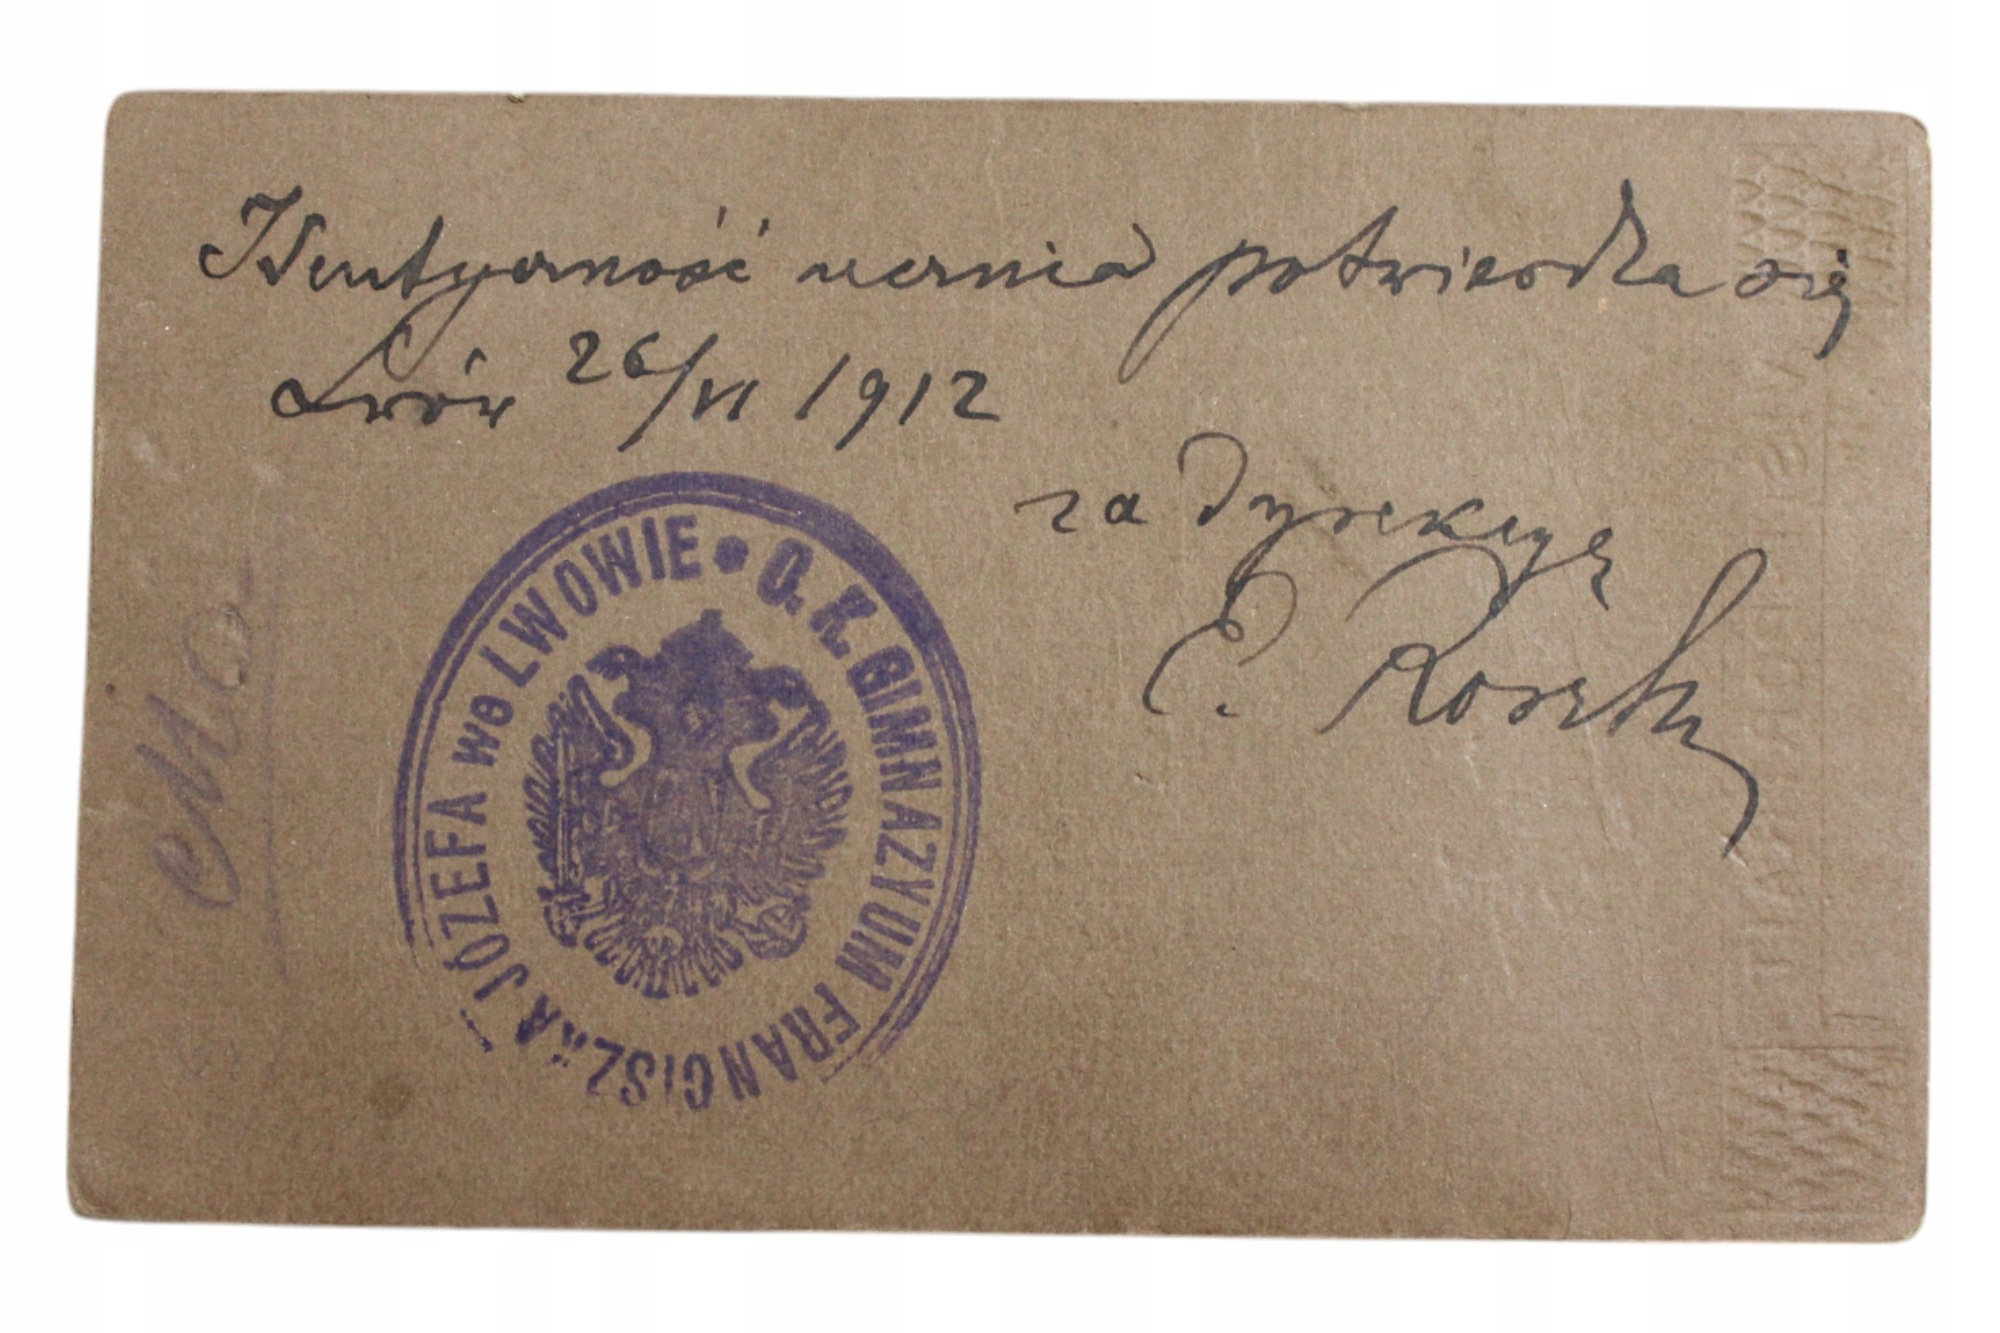 Identyczność ucznia potwierdza się
Lwów 26/VI 1912
za Dyrekcyę
E.
C. K. GIMNAZYUM FRANCISZKA JÓZEFA we LWOWIE